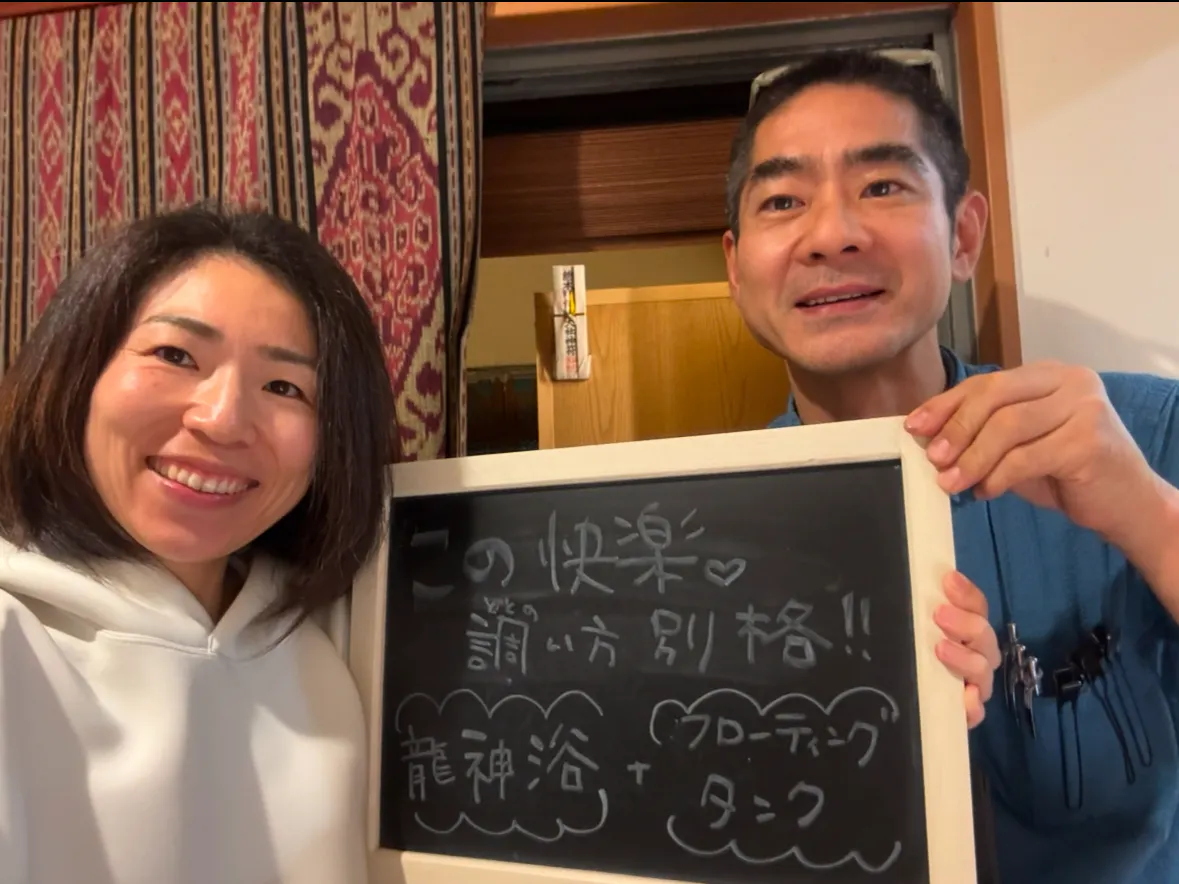 この快楽♡
ととの
調い方 別格!!
龍神浴 + フローティング
タンク